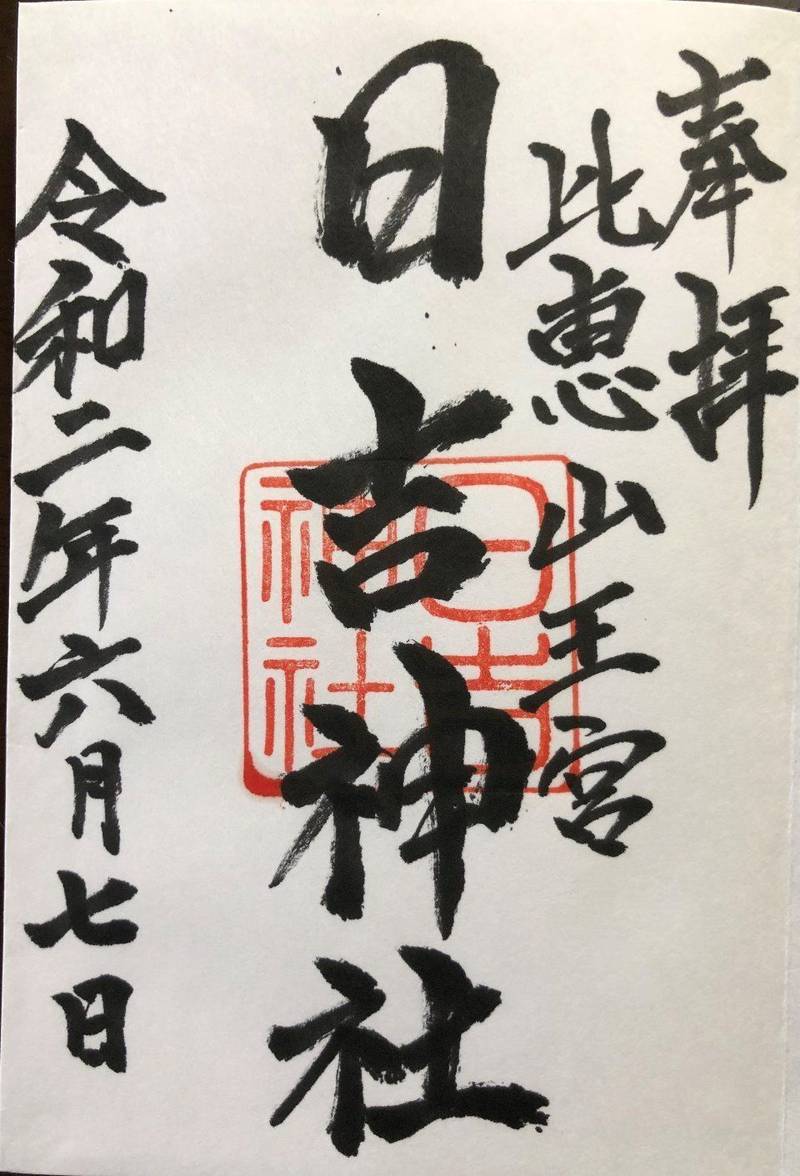 奉拝
比恵山王宮
日吉神社
日吉
神社
令和二年六月七日